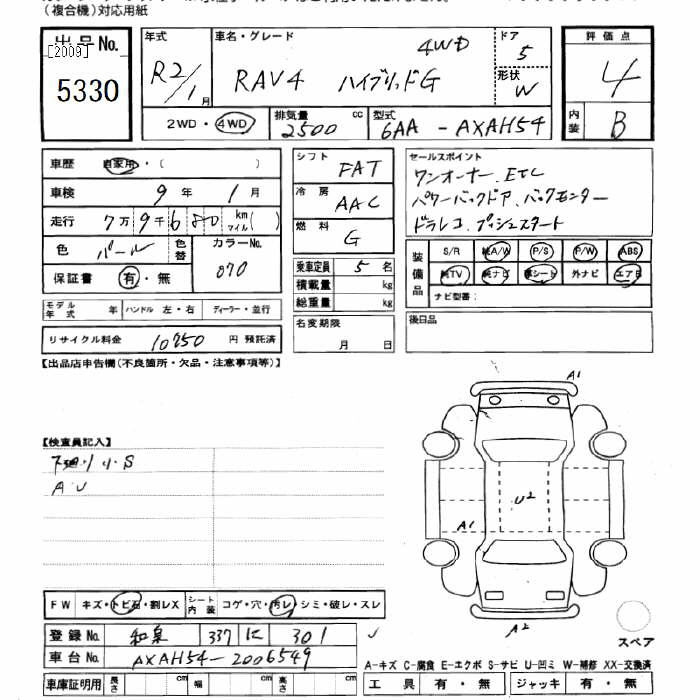 (複合機)対応用紙
出品No. 年式 車名・グレード 4WD ドア 5 評価点
[2009] 5330 R2/1月 RAV4 ハイブリッドG 形状 W 4
2WD・4WD 排気量 2500 cc 型式 6AA - AXAH54 内装 B
車歴 自家用・( )
車検 9年 1月
走行 7万9千680 km マイル( )
色 パール 色替 カラーNo. 070
保証書 有・無
モデル年式 年 ハンドル 左・右 ディーラー・並行
リサイクル料金 10750 円 預託済
シフト FAT
冷房 AAC
燃料 G
乗車定員 5 名
積載量 kg
総重量 kg
名変期限 月 日
セールスポイント
ワンオーナー、ETC
パワーバックドア、バックモニター
ドラレコ、プッシュスタート
装備品 S/R 純A/W P/S P/W ABS
純TV 純ナビ 革シート 外ナビ エアB
ナビ型番:
後日品
【出品店申告欄(不良箇所・欠品・注意事項等)】
【検査員記入】
下廻り小S
AU
A1
U2
A1
A2
スペア
FW キズ・トビ石・割レX シート内装 コゲ・穴・汚レ・シミ・破レ・スレ
登録No. 和泉 337 に 301
車台No. AXAH54-2006549
車庫証明用 長さ cm 幅 cm 高さ cm
A-キズ C-腐食 E-エクボ S-サビ U-凹ミ W-補修 XX-交換済
工具 有・無 ジャッキ 有・無